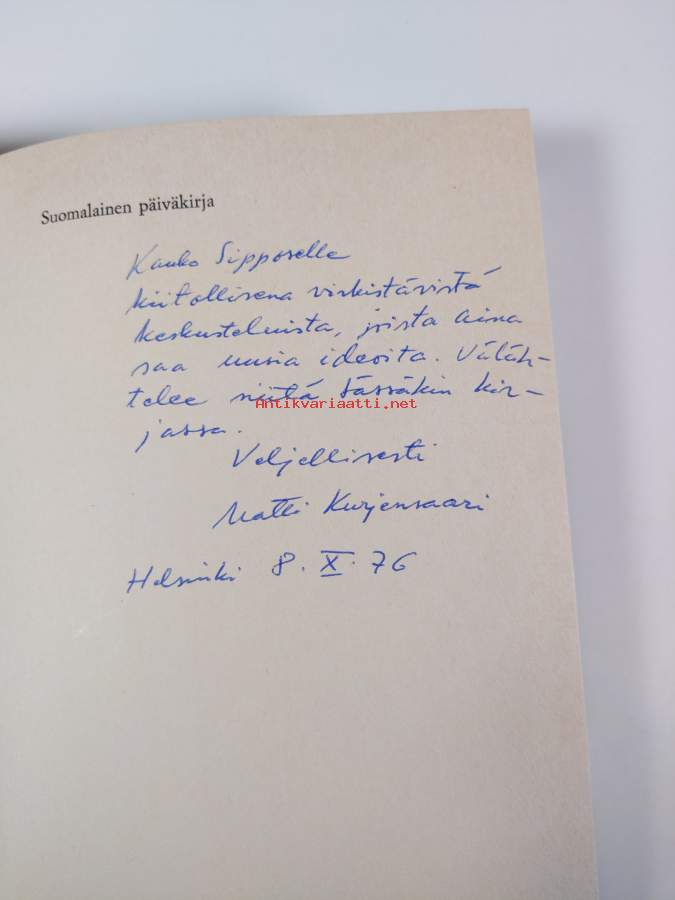 Suomalainen päiväkirja
Kauko Sipposelle
kiitollisena virkistävistä
keskusteluista, joista aina
saa uusia ideoita. Väläh-
telee niitä tässäkin kir-
Antikvariaatti.net
jassa.
Veljellisesti
Matti Kurjensaari
Helsinki 8. X. 76